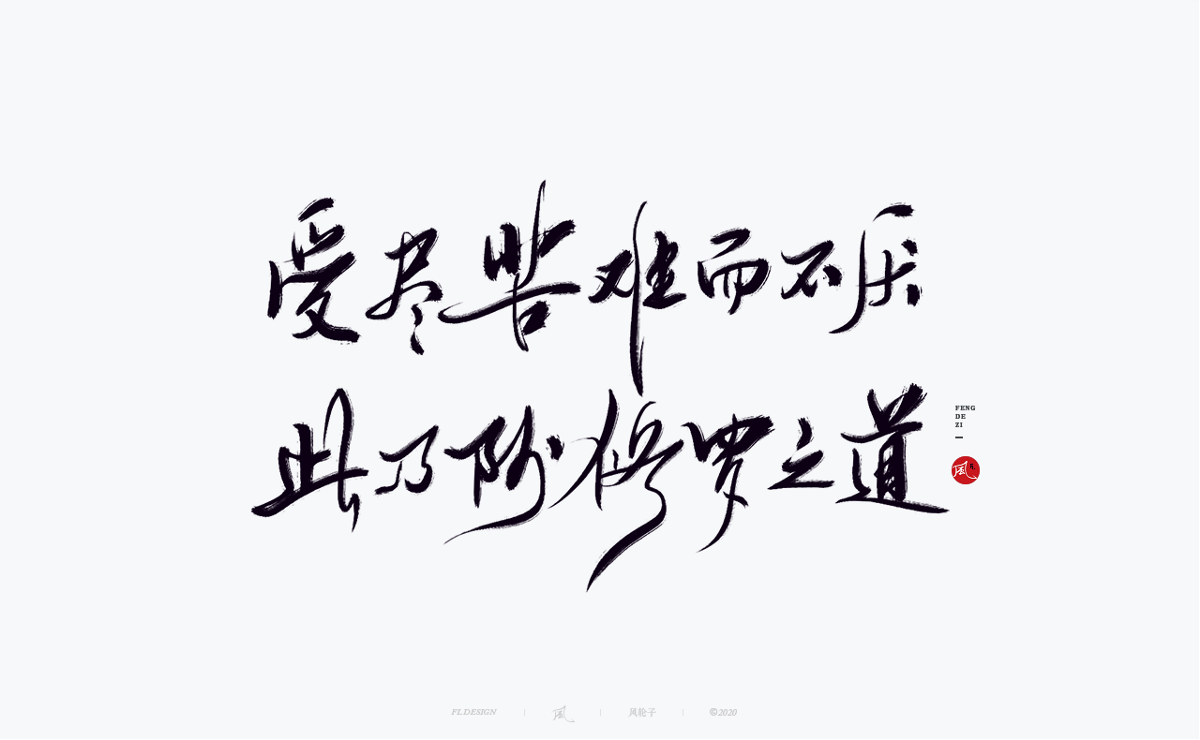 受尽苦难而不厌
此乃阿修罗之道
FENG
DE
ZI
風
FL.DESIGN 風 风轮子 ©2020